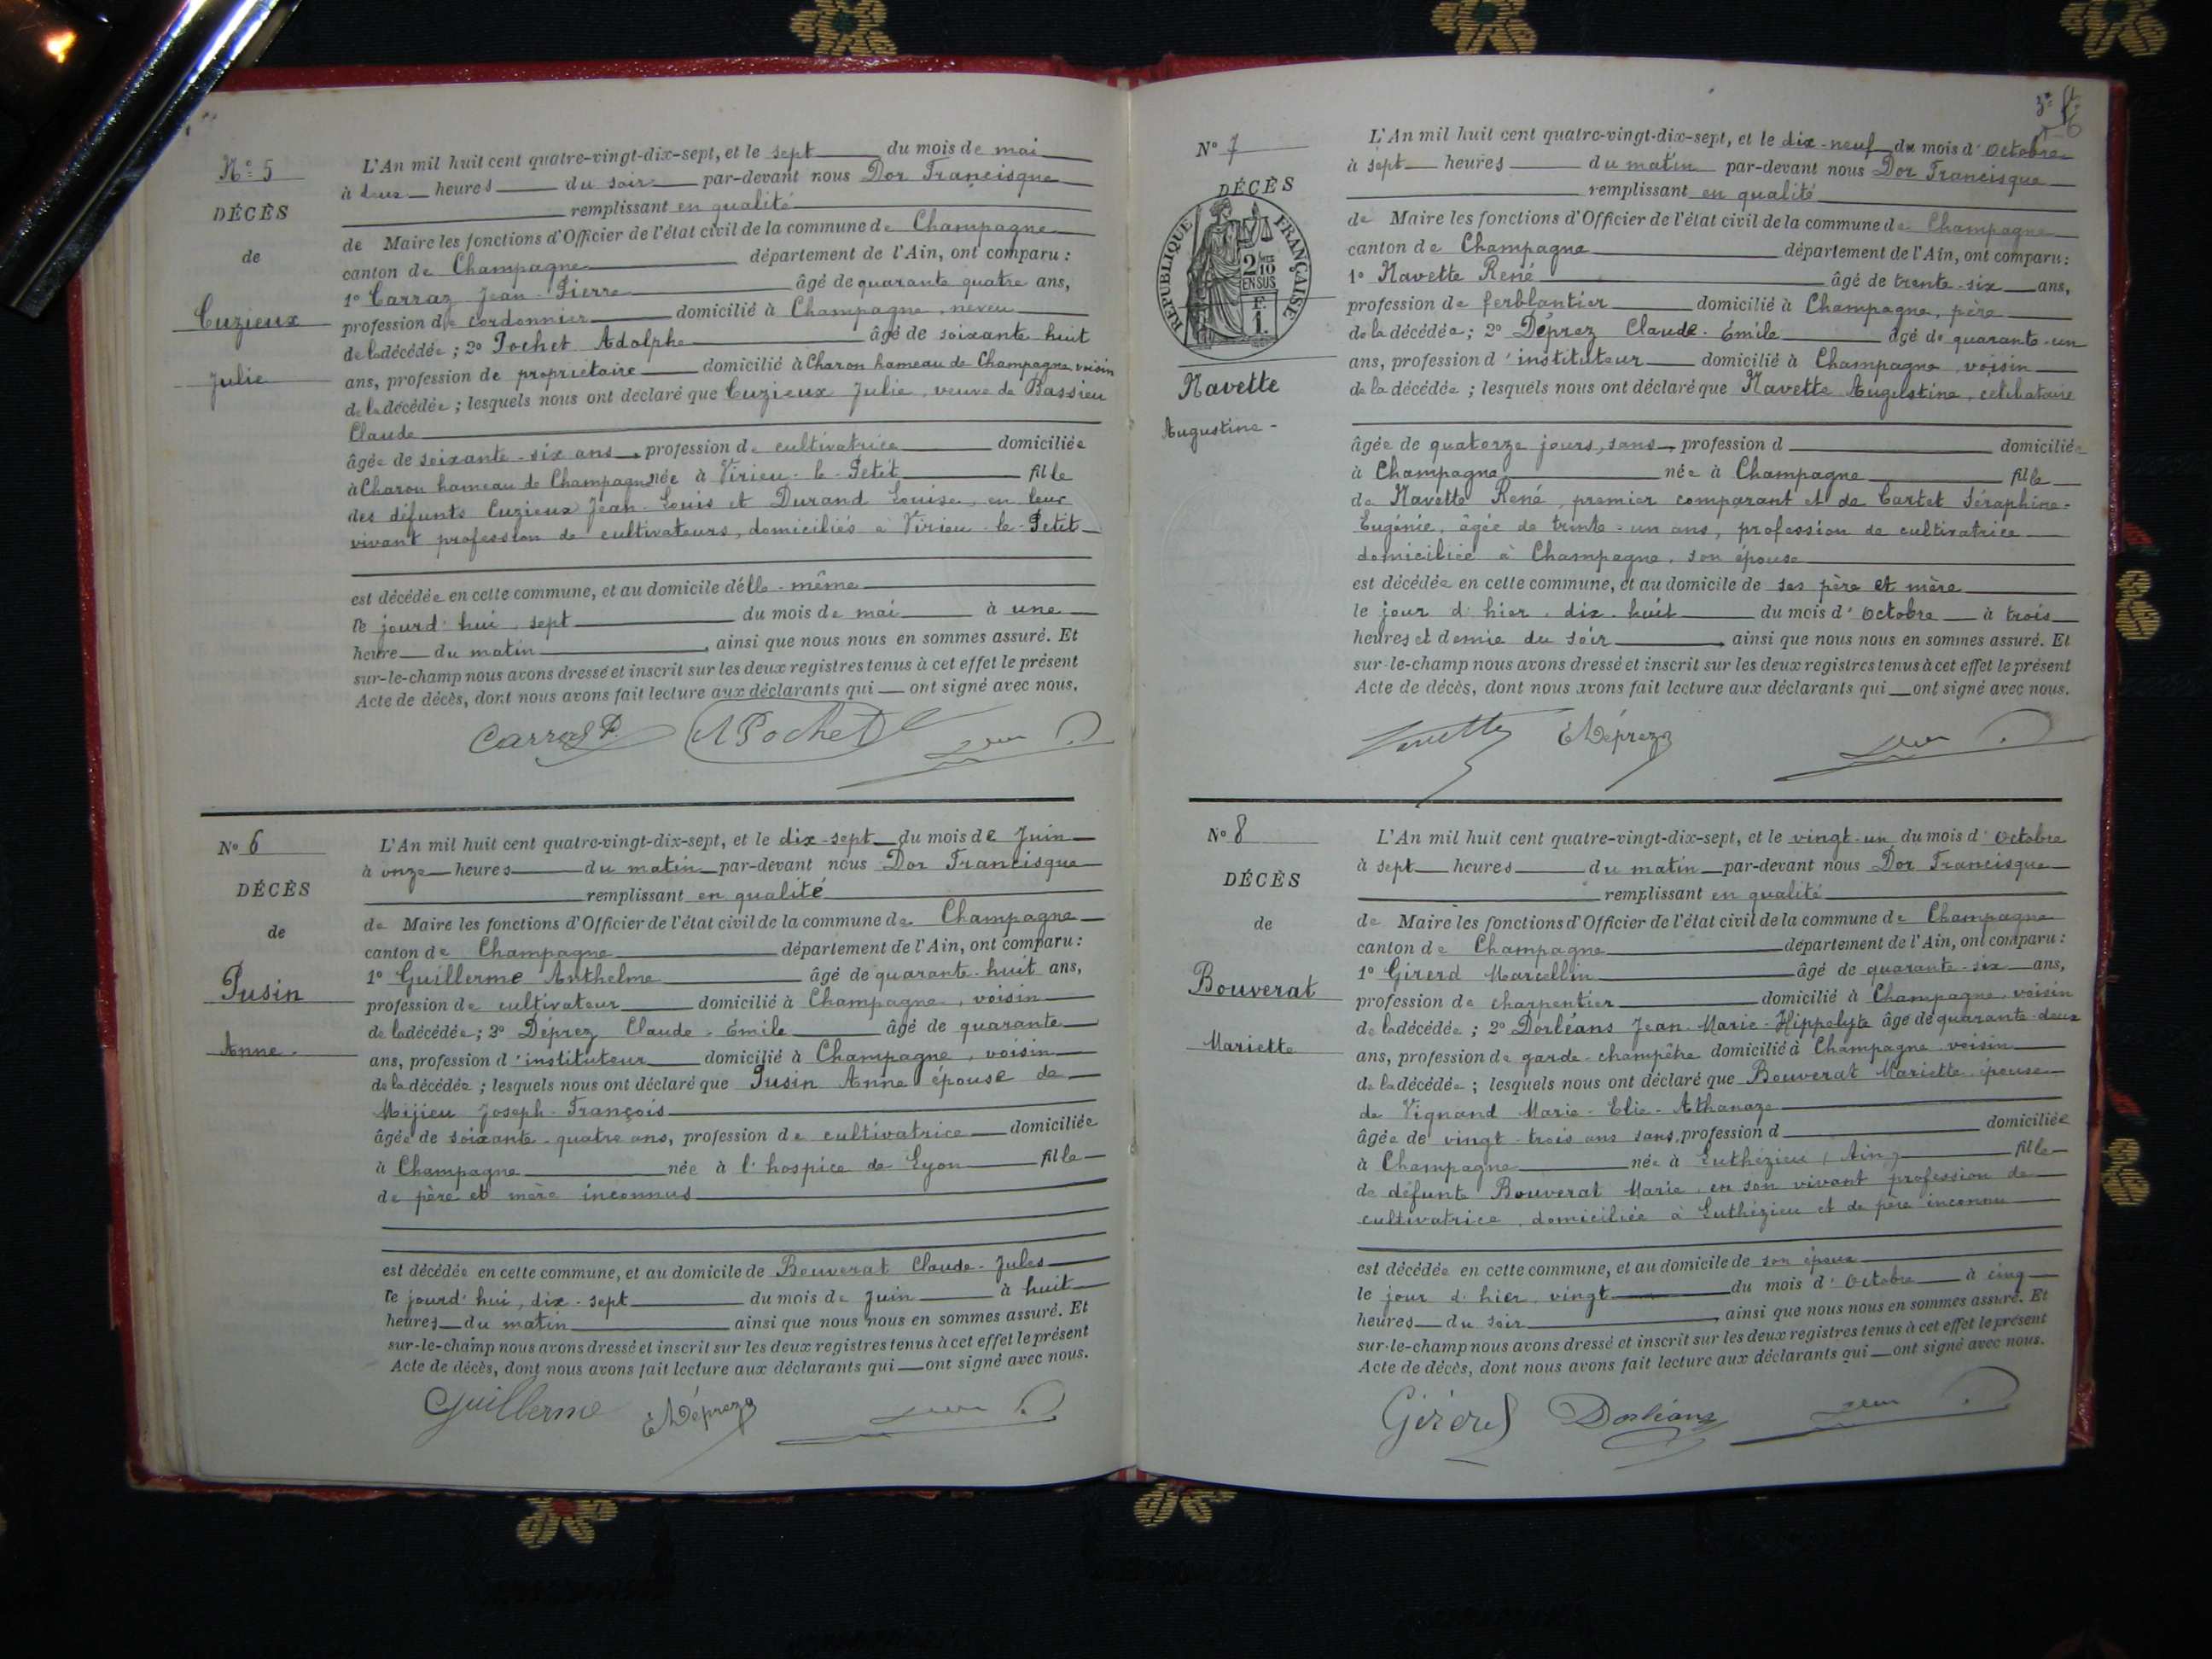 N° 5
DÉCÈS
de
Cuzieux
Julie
L'An mil huit cent quatre-vingt-dix-sept, et le sept du mois de mai
à deux heures du soir par-devant nous Dor Francisque
remplissant en qualité
de Maire les fonctions d'Officier de l'état civil de la commune de Champagne
canton de Champagne département de l'Ain, ont comparu :
1° Carraz Jean-Pierre âgé de quarante quatre ans,
profession de cordonnier domicilié à Champagne, neveu
de la décédée ; 2° Pochet Adolphe âgé de soixante huit
ans, profession de propriétaire domicilié à Charon hameau de Champagne, voisin
de la décédée ; lesquels nous ont déclaré que Cuzieux Julie, veuve de Bassieu
Claude
âgée de soixante-six ans, profession de cultivatrice domiciliée
à Charon hameau de Champagne née à Virieu-le-Petit fille
des défunts Cuzieux Jean-Louis et Durand Louise, en leur
vivant profession de cultivateurs, domiciliés à Virieu-le-Petit
est décédée en cette commune, et au domicile d'elle-même
le jourd'hui, sept du mois de mai à une
heure du matin, ainsi que nous nous en sommes assuré. Et
sur-le-champ nous avons dressé et inscrit sur les deux registres tenus à cet effet le présent
Acte de décès, dont nous avons fait lecture aux déclarants qui ont signé avec nous.
Carraz P. A Pochet
N° 6
DÉCÈS
de
Pusin
Anne
L'An mil huit cent quatre-vingt-dix-sept, et le dix-sept du mois de Juin
à onze heures du matin par-devant nous Dor Francisque
remplissant en qualité
de Maire les fonctions d'Officier de l'état civil de la commune de Champagne
canton de Champagne département de l'Ain, ont comparu :
1° Guillerme Anthelme âgé de quarante-huit ans,
profession de cultivateur domicilié à Champagne, voisin
de la décédée ; 2° Déprez Claude-Émile âgé de quarante
ans, profession d'instituteur domicilié à Champagne, voisin
de la décédée ; lesquels nous ont déclaré que Pusin Anne épouse de
Mijieu Joseph-François
âgée de soixante-quatre ans, profession de cultivatrice domiciliée
à Champagne née à l'hospice de Lyon fille
de père et mère inconnus
est décédée en cette commune, et au domicile de Bouverat Claude-Jules
le jourd'hui, dix-sept du mois de Juin à huit
heures du matin ainsi que nous nous en sommes assuré. Et
sur-le-champ nous avons dressé et inscrit sur les deux registres tenus à cet effet le présent
Acte de décès, dont nous avons fait lecture aux déclarants qui ont signé avec nous.
Guillerme E Déprez
N° 7
DÉCÈS
RÉPUBLIQUE FRANÇAISE
2/10 EN SUS
F. 1.
Navette
Augustine
L'An mil huit cent quatre-vingt-dix-sept, et le dix-neuf du mois d'Octobre
à sept heures du matin par-devant nous Dor Francisque
remplissant en qualité
de Maire les fonctions d'Officier de l'état civil de la commune de Champagne
canton de Champagne département de l'Ain, ont comparu :
1° Navette René âgé de trente-six ans,
profession de ferblantier domicilié à Champagne, père
de la décédée ; 2° Déprez Claude-Émile âgé de quarante-un
ans, profession d'instituteur domicilié à Champagne, voisin
de la décédée ; lesquels nous ont déclaré que Navette Augustine, célibataire
âgée de quatorze jours, sans profession d domiciliée
à Champagne née à Champagne fille
de Navette René, premier comparant et de Cartet Séraphine-
Eugénie, âgée de trente-un ans, profession de cultivatrice
domiciliée à Champagne, son épouse
est décédée en cette commune, et au domicile de ses père et mère
le jour d'hier, dix-huit du mois d'Octobre à trois
heures et demie du soir, ainsi que nous nous en sommes assuré. Et
sur-le-champ nous avons dressé et inscrit sur les deux registres tenus à cet effet le présent
Acte de décès, dont nous avons fait lecture aux déclarants qui ont signé avec nous.
Navette E Déprez
N° 8
DÉCÈS
de
Bouverat
Mariette
L'An mil huit cent quatre-vingt-dix-sept, et le vingt-un du mois d'Octobre
à sept heures du matin par-devant nous Dor Francisque
remplissant en qualité
de Maire les fonctions d'Officier de l'état civil de la commune de Champagne
canton de Champagne département de l'Ain, ont comparu :
1° Girerd Marcellin âgé de quarante-six ans,
profession de charpentier domicilié à Champagne, voisin
de la décédée ; 2° Dorléans Jean-Marie-Hippolyte âgé de quarante-deux
ans, profession de garde-champêtre domicilié à Champagne voisin
de la décédée ; lesquels nous ont déclaré que Bouverat Mariette épouse
de Vignand Marie-Elie-Athanaze
âgée de vingt-trois ans sans profession d domiciliée
à Champagne née à Luthézieu (Ain) fille
de défunte Bouverat Marie, en son vivant profession de
cultivatrice, domiciliée à Luthézieu et de père inconnu
est décédée en cette commune, et au domicile de son époux
le jour d'hier, vingt du mois d'Octobre à cinq
heures du soir, ainsi que nous nous en sommes assuré. Et
sur-le-champ nous avons dressé et inscrit sur les deux registres tenus à cet effet le présent
Acte de décès, dont nous avons fait lecture aux déclarants qui ont signé avec nous.
Girerd Dorléans